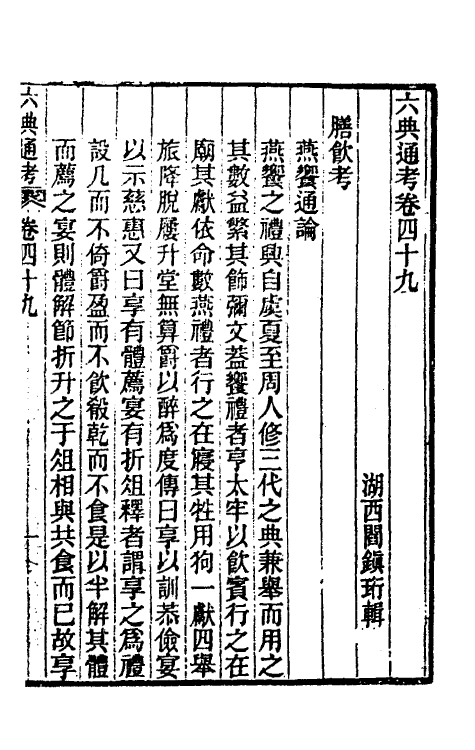 六典通考卷四十九
湖西閻鎭珩輯
膳飲考
燕饗通論
燕饗之禮興自虞夏至周人修三代之典兼舉而用之
其數益繁其飾彌文葢饗禮者亨太牢以飲賓行之在
廟其獻依命數燕禮者行之在寢其牲用狗一獻四舉
旅降脫屨升堂無算爵以醉爲度傳曰享以訓恭儉宴
以示慈惠又曰享有體薦宴有折俎釋者謂享之爲禮
設几而不倚爵盈而不飲殽乾而不食是以半解其體
而薦之宴則體解節折升之于俎相與共食而已故享
六典通考 卷四十九 一